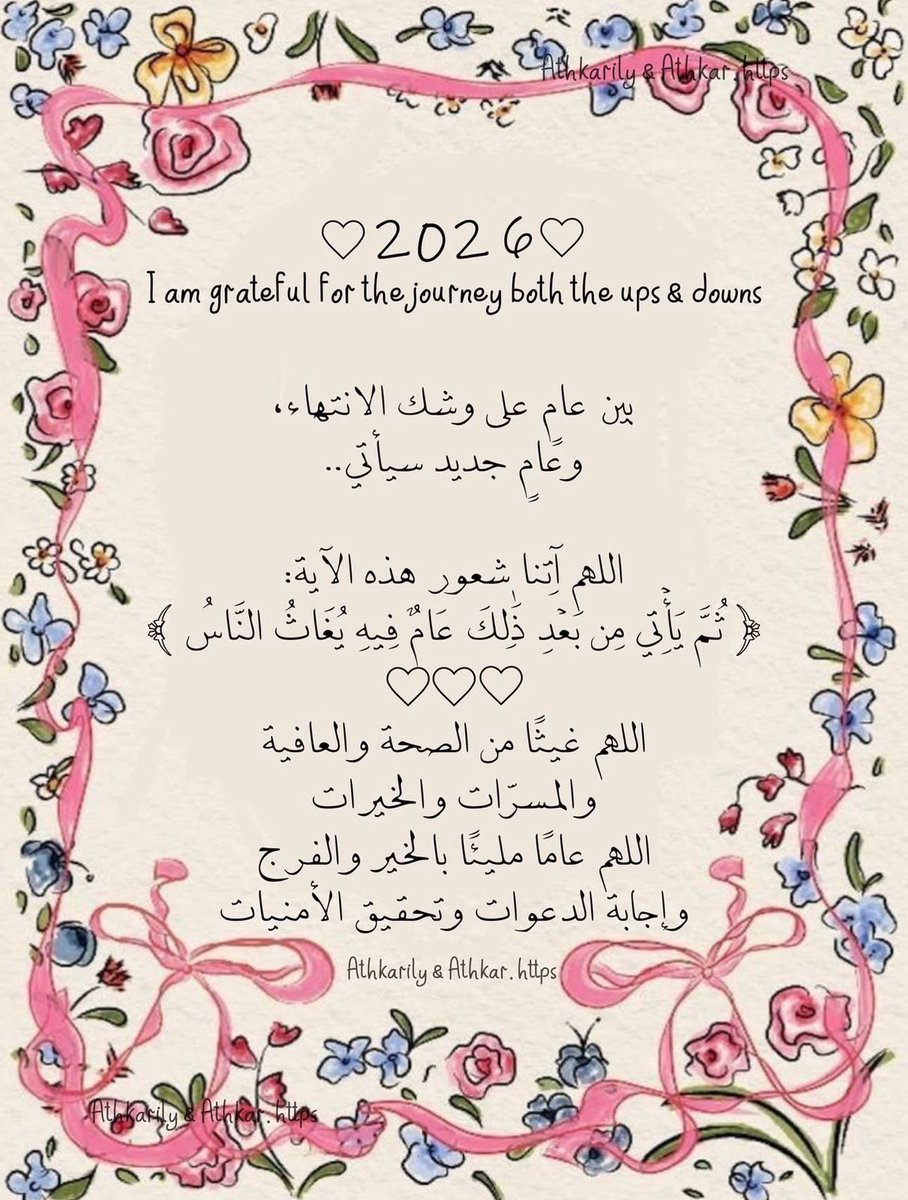 Athkarily & Athkar. https
♡2026♡
I am grateful for the journey both the ups & downs
بين عامٍ على وشك الانتهاء،
وعامٍ جديد سيأتي..
اللهم آتنا شعور هذه الآية:
﴿ ثُمَّ يَأْتِي مِن بَعْدِ ذَٰلِكَ عَامٌ فِيهِ يُغَاثُ النَّاسُ ﴾
♡♡♡
اللهم غيثًا من الصحة والعافية
والمسرّات والخيرات
اللهم عامًا مليئًا بالخير والفرج
وإجابة الدعوات وتحقيق الأمنيات
Athkarily & Athkar. https
Athkarily & Athkar. https